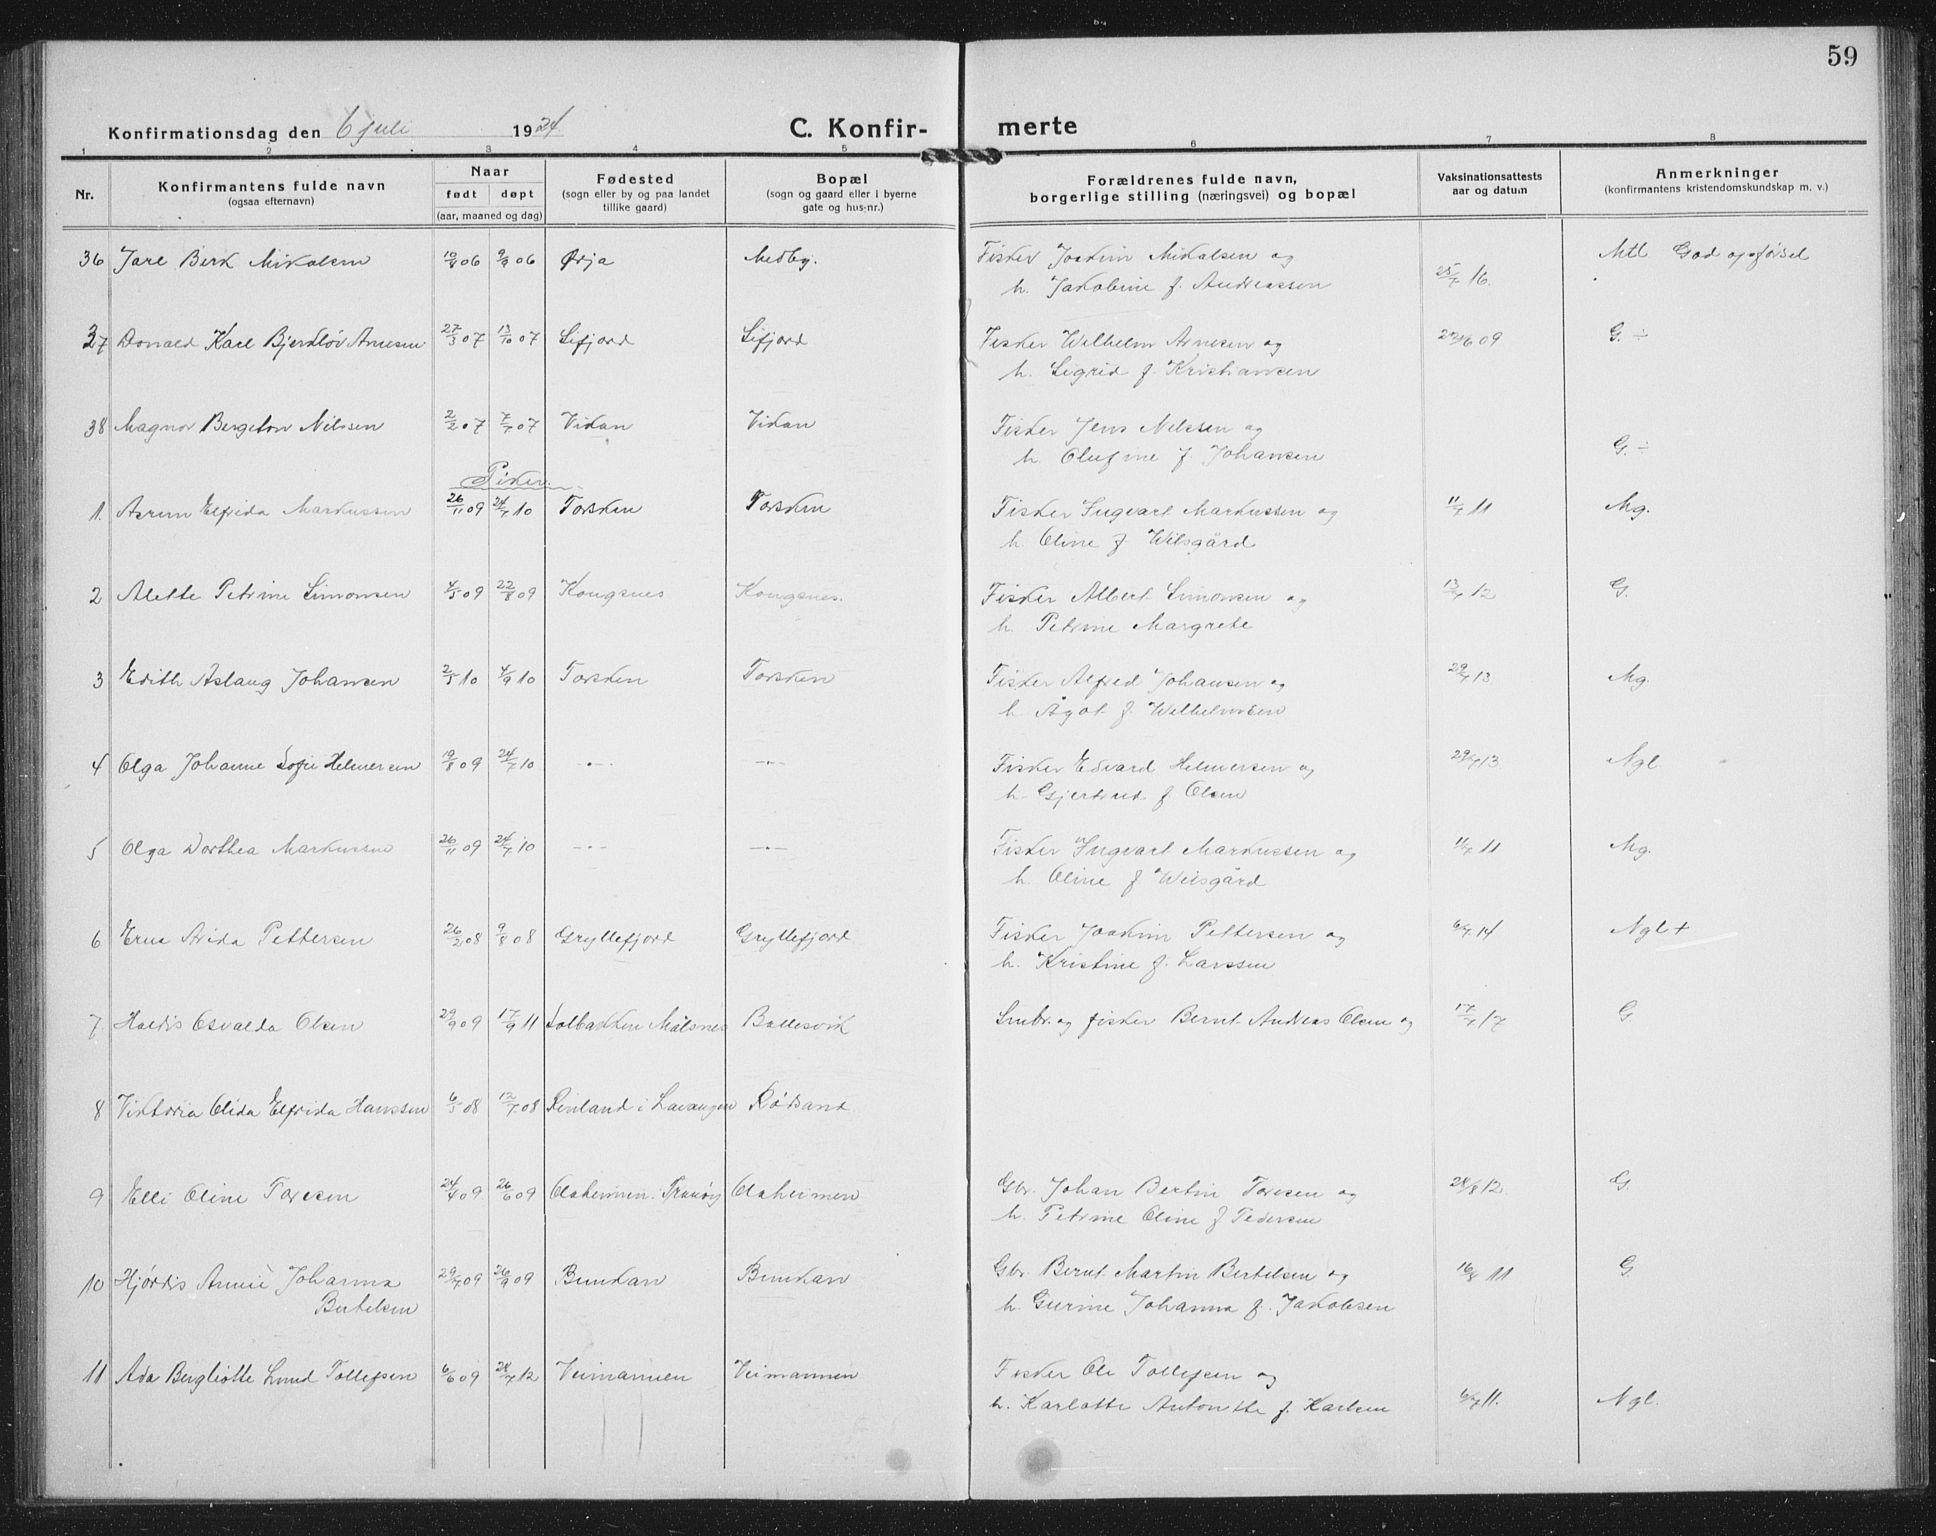 59
Konfirmationsdag den 6 juli 1924 C. Konfir- merte
1 2 3 4 5 6 7 8
Nr. Konfirmantens fulde navn (ogsaa efternavn) Naar født døpt (aar, maaned og dag) Fødested (sogn eller by og paa landet tillike gaard) Bopæl (sogn og gaard eller i byerne gate og hus-nr.) Forældrenes fulde navn, borgerlige stilling (næringsvei) og bopæl Vaksinationsattests aar og datum Anmerkninger (konfirmantens kristendomskundskap m. v.)
36 Jarl Berk Mikalsen 10/8 06 9/9 06 Ørja Medby. Fisker Joakim Mikalsen og 25/7 16. Mtl God opførsel
h. Jakobine f. Andreassen
37 Donald Karl Arnesen 27/3 07 13/10 07 Sifjord Sifjord Fisker Wilhelm Arnesen og 09 G. ÷
h. Sigrid f. Kristiansen
38 Magnor Bergeton Nilssen 2/2 07 7/7 07 Vikan Vikan Fisker Jens Nilssen og
h. Olufine f. Johansen G. ÷
Piker.
1. Elfrida Markussen 26/11 09 24/7 10 Torsken Torsken Fisker Ingvart Markussen og 11/7 11 Mg.
h. Oline f. Wilsgård
2 Alette Petrine Simonsen 4/5 09 22/8 09 Kongsnes Kongsnes. Fisker Albert Simonsen og 13/7 12 G.
h. Petrine Margrete
3 Edith Aslaug Johansen 2/5 10 4/9 10 Torsken Torsken Fisker Alfred Johansen og 29/7 13. Mg.
h. Ågot f. Wilhelmsen
4 Olga Johanne Sofie Helmersen 19/8 09 24/7 10 —„— —„— Fisker Edvard Helmersen og 29/7 13. Ngl.
h. Gjertrud f. Olsen
5 Olga Dorthea Markussen 26/11 09 24/7 10 —„— —„— Fisker Ingvart Markussen og 11/7 11 Mg.
h. Oline f. Wilsgård
6 Erna Arida Pettersen 26/2 08 9/8 08 Gryllefjord Gryllefjord Fisker Joakim Pettersen og 6/7 14 Ngl +
h. Kristine f. Larssen
7 Haldis Osvalda Olsen 29/9 09 17/9 11 Solbakken Målsnes Ballesvik Smbr. og fisker Bernt Andreas Olsen og 17/7 17 G.
8 Viktoria Olida Elfrida Hanssen 6/5 08 12/7 08 Rinland i Lavangen Rødsand
9 Elli Oline Toresen 24/4 09 26/6 09 Olaheimen i Tranøy Olaheimen Gbr. Johan Bertin Toresen og 28/8 12. G.
h. Petrine Oline f Pedersen
10 Hjørdis Annie Johanna 29/7 09 26/9 09 Bunkan Bunkan Gbr. Bernt Martin Bertelsen og 16/8 11 G.
Bertelsen h. Gurine Johanna f. Jakobsen
11 Ada Bergliotte Lund Tollefsen 6/6 09 28/7 12 Veimannen Veimannen Fisker Ole Tollefsen og
h. Karlotte Antonette f. Karlsen 6/7 11. Ngl.